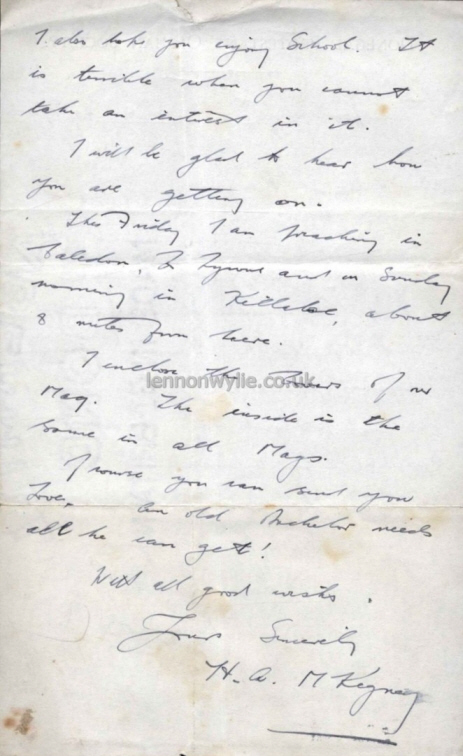 I also hope you enjoy School. It
is terrible when you cannot
take an interest in it.
I will be glad to hear how
you are getting on.
This Friday I am preaching in
Caledon, Co Tyrone and on Sunday
morning in about
8 miles from here.
I enclose the of our
Mag. The inside is the
same in all Mags.
Of course you can send your
Love. An old Bachelor needs
all he can get!
With all good wishes.
Yours Sincerely
H. A. M
lennonwylie.co.uk